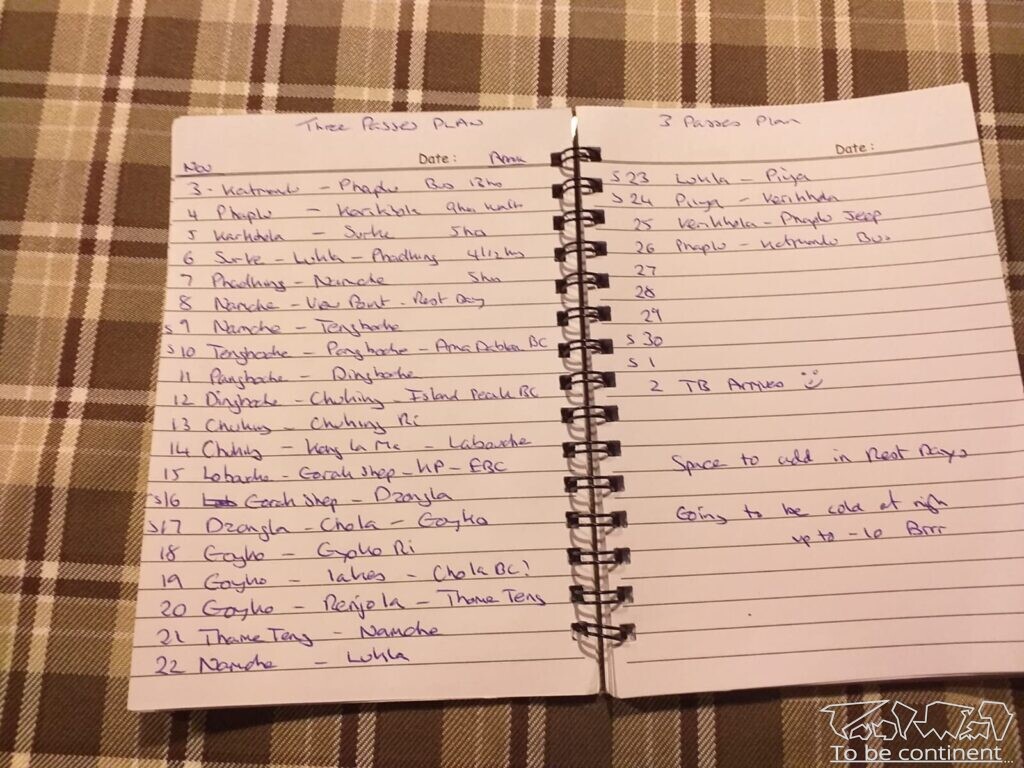 Three Passes PLAN
Date:
Nov
3 - Katmandu - Phaplu Bus 12hs
4 Phaplu - Karikhola 9hrs walk
5 Karikhola - Surke 5hrs
6 Surke - Lukla - Phadking 4 1/2 hrs
7 Phadking - Namche 5hrs
8 Namche - View Point - Rest Day
S 9 Namche - Tengboche
S 10 Tengboche - Pangboche - Ama Dablan BC
11 Pangboche - Dingboche
12 Dingboche - Chuking - Island Peak BC
13 Chuking - Chuking Ri
14 Chuking - Kong La Ma - Labouche
15 Lobache - Gorak Shep - KP - EBC
S16 Gorak Shep - Dzongla
S17 Dzongla - Chola - Goyko
18 Goyko - Gyoko Ri
19 Goyko - lakes - Chola BC?
20 Goyko - Renjo la - Thame Teng
21 Thame Teng - Namche
22 Namche - Lukla
3 Passes Plan
Date:
S 23 Lukla - Piya
S 24 Piya - Kerikhola
25 Kerikhola - Phaplu Jeep
26 Phaplu - Katmandu Bus
27
28
29
S 30
S 1
2 TB Arrives
Space to add in Rest Days
Going to be cold at nigh
up to -10 Brrr
To be continent...